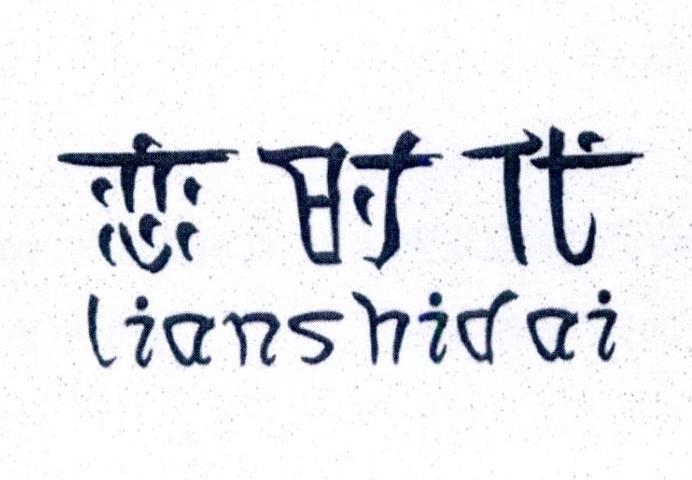 恋时代
lianshidai